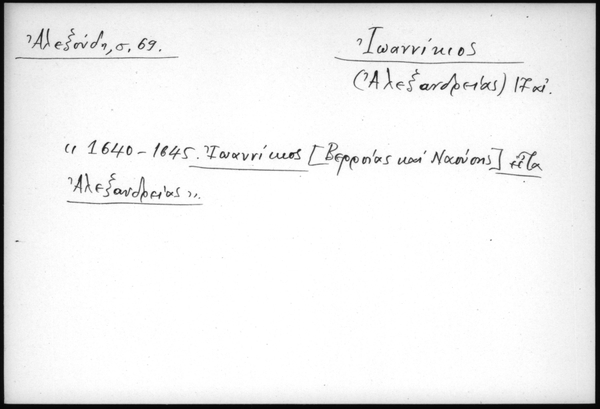 Ἀλεξούδη, σ. 69.
Ἰωαννίκιος
(Ἀλεξανδρείας) 17 αἰ.
« 1640-1645. Ἰωαννίκιος [Βερροίας καὶ Ναούσης] εἶτα
Ἀλεξανδρείας ».